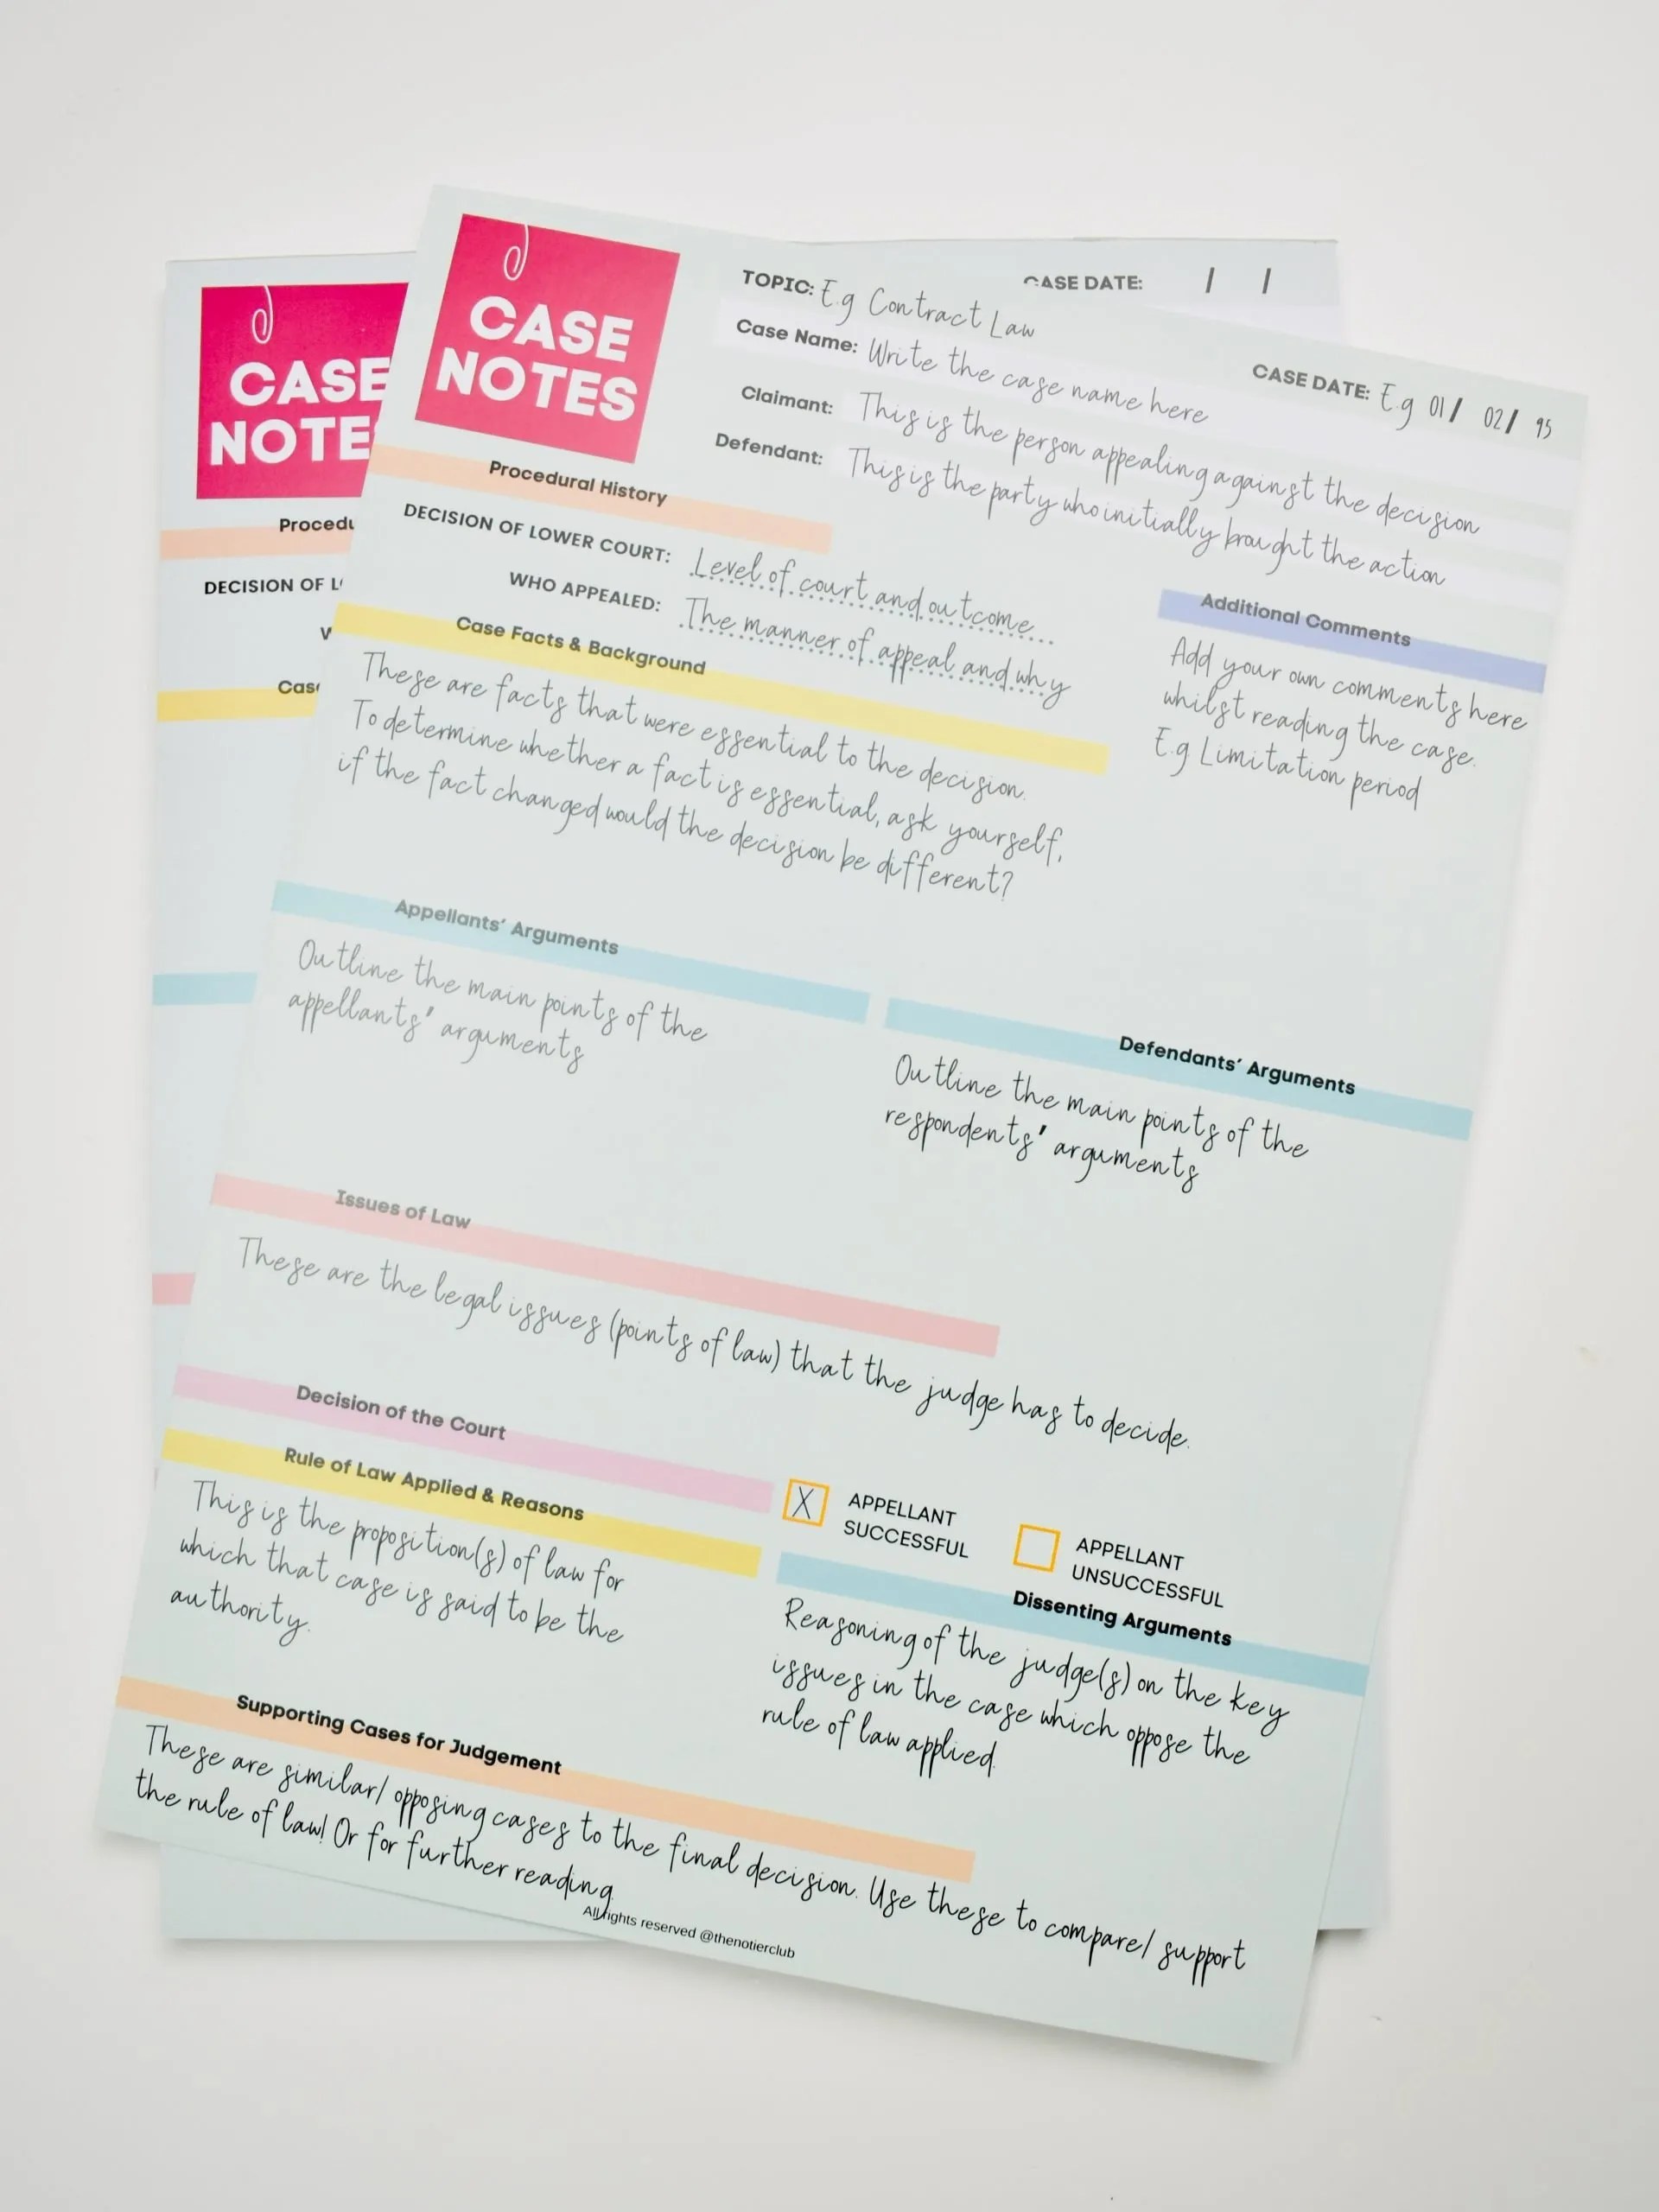 CASE
NOTES
TOPIC: E.g Contract Law
CASE DATE: E.g 01/ 02/ 95
Case Name: Write the case name here
Claimant: This is the person appealing against the decision
Defendant: This is the party who initially brought the action
Procedural History
DECISION OF LOWER COURT: Level of court and outcome
WHO APPEALED: The manner of appeal and why
Additional Comments
Add your own comments here
whilst reading the case.
E.g Limitation period
Case Facts & Background
These are facts that were essential to the decision.
To determine whether a fact is essential, ask yourself,
if the fact changed would the decision be different?
Appellants' Arguments
Outline the main points of the
appellants' arguments
Defendants' Arguments
Outline the main points of the
respondents' arguments
Issues of Law
These are the legal issues (points of law) that the judge has to decide.
Decision of the Court
X APPELLANT
SUCCESSFUL
APPELLANT
UNSUCCESSFUL
Rule of Law Applied & Reasons
This is the proposition(s) of law for
which that case is said to be the
authority.
Dissenting Arguments
Reasoning of the judge(s) on the key
issues in the case which oppose the
rule of law applied.
Supporting Cases for Judgement
These are similar/ opposing cases to the final decision. Use these to compare/ support
the rule of law! Or for further reading
All rights reserved @thenotierclub
CASE
NOTES
CASE DATE: / /
Procedu
DECISION OF L
W
Cas